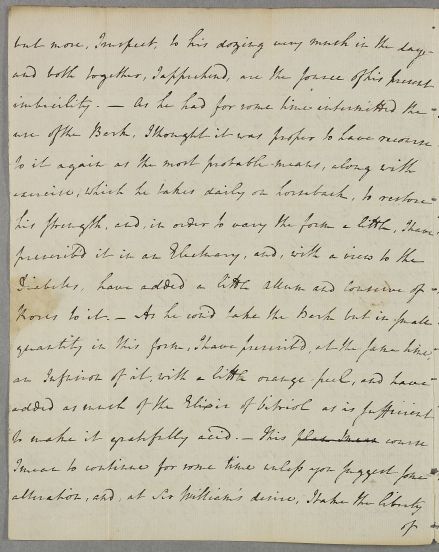 but more, I suspect, to his dozing very much in the day-
and both together, I apprehend, are the source of his present
imbicility. — As he had for some time intermitted the
use of the Bark, I thought it was proper to have recourse
to it again as the most probable means, along with
exercise, which he takes daily on horseback, to restore
his strength, and, in order to vary the form a little, I have
prescrib'd it in an Electuary, and, with a view to the
Diabetes, have added a little allum and conserve of
Roses to it. — As he cou'd take the Bark but in small
quantity in this form, I have prescrib'd, at the same time,
an Infusion of it, with a little orange peel, and have
added as much of the Elixir of Vitriol as is sufficient
to make it gratefully acid. — This course
I mean to continue for some time unless you suggest some
alteration, and, at Sir William's desire, I take the liberty
of